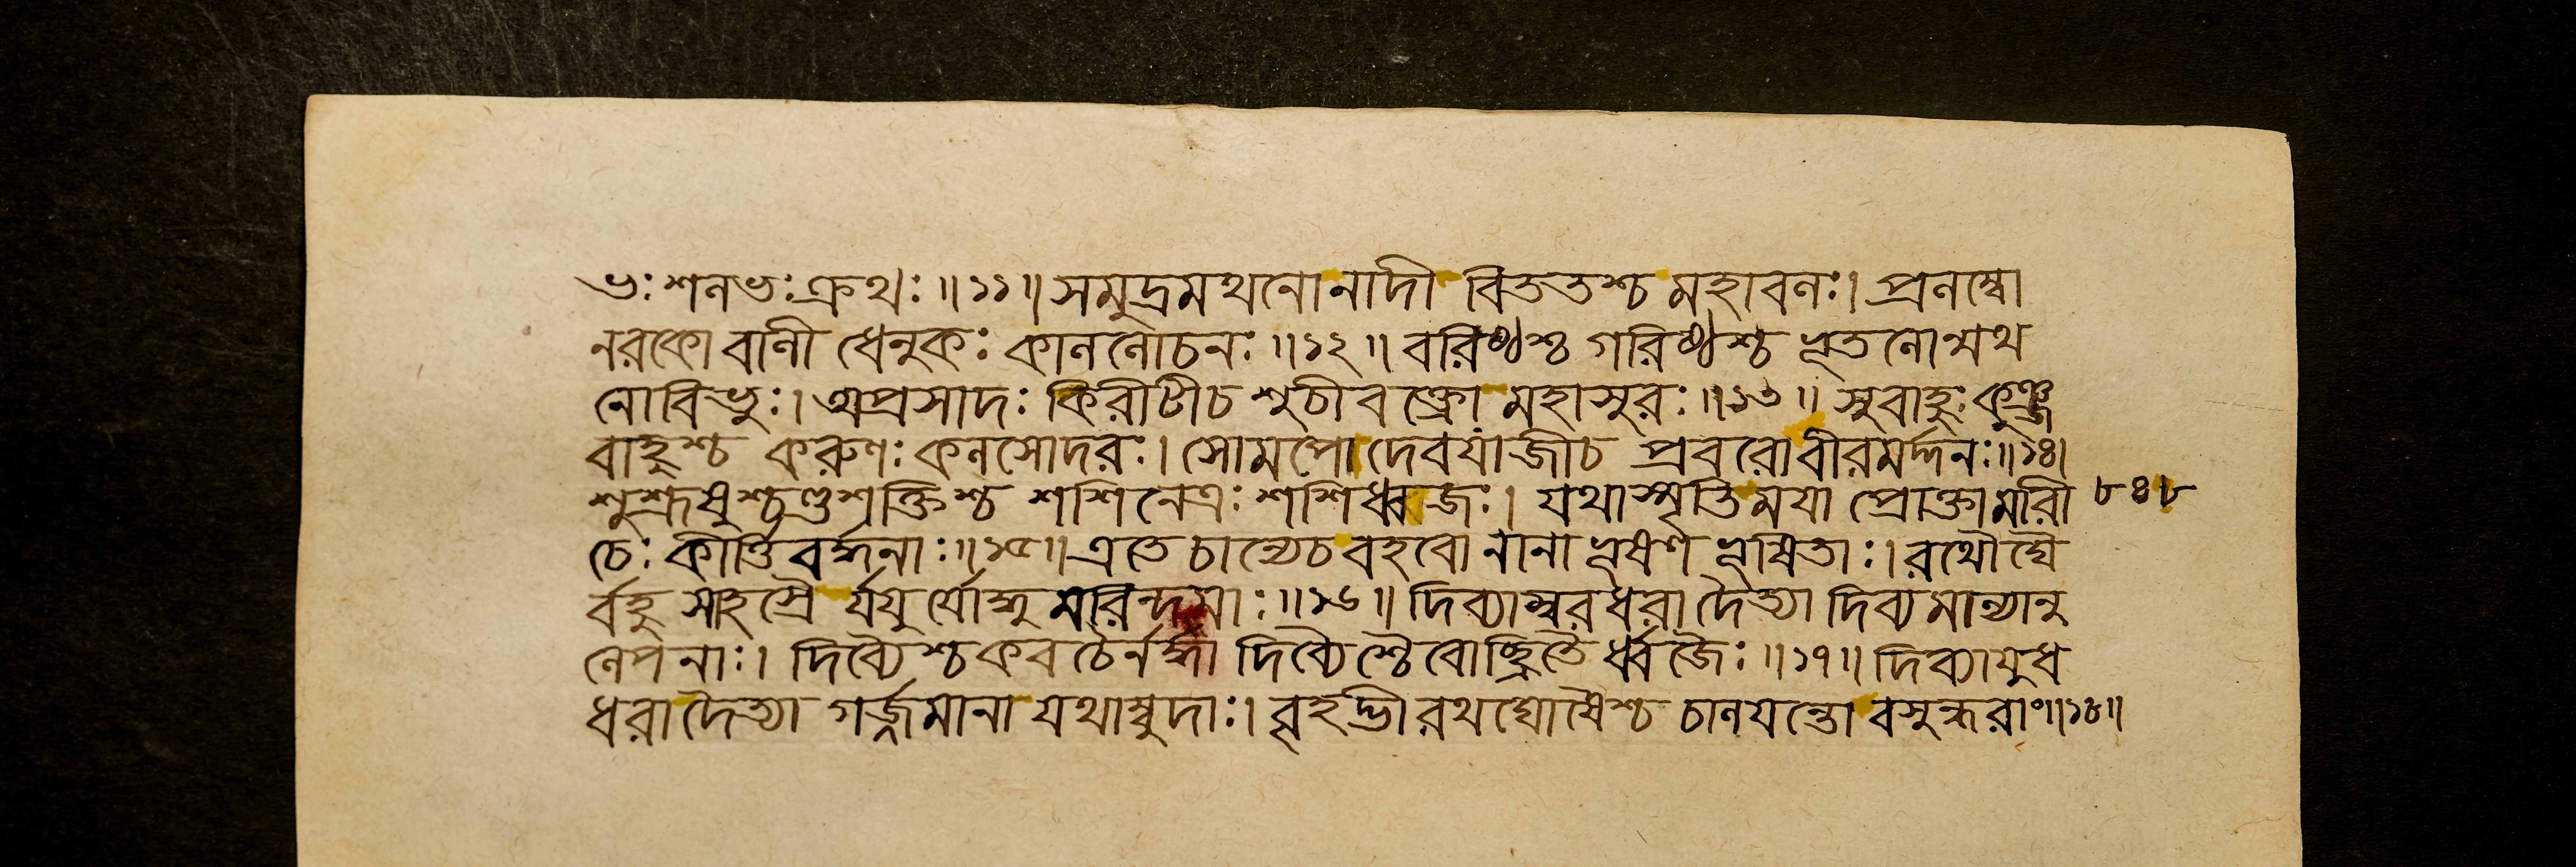 ভঃ শনভঃ ক্রথঃ॥১১॥ সমুদ্রমথনো নাদী বিততশ্চ মহাবনঃ। প্রনম্বো
নরকো বানী ধেনুকঃ কাননোচনঃ॥১২॥ বরিষ্ঠশ্চ গরিষ্ঠশ্চ ভূতনোন্মথ
নো বিভুঃ। অপ্রসাদঃ কিরীটীচ শুচীবক্ত্রো মহাসুরঃ॥১৩॥ সুবাহুঃ কুঞ্জ
বাহুশ্চ করুণঃ কনসোদরঃ। সোমপো দেবযাজীচ প্রবরো বীরমর্দ্দনঃ॥১৪।
শুশ্রূষুশ্চণ্ডশক্তিশ্চ শশিনেত্রঃ শশিধ্বজঃ। যথাস্মৃতি ময়া প্রোক্তা মরী ৮৪৮
চেঃ কীর্ত্তিবর্দ্ধনাঃ॥১৫॥ এতে চান্যেচ বহবো নানা ভূষণ ভূষিতাঃ। রথৌঘৈ
র্বহু সাহস্রৈ র্যযু র্যোদ্ধু মরিন্দমাঃ॥১৬॥ দিব্যাম্বরধরা দৈত্যা দিব্যমান্যানু
নেপনাঃ। দিব্যৈশ্চ কবচৈর্নদ্ধা দিব্যৈশ্চৈবোচ্ছ্রিতৈ র্ধ্বজৈঃ॥১৭॥ দিব্যায়ুধ
ধরা দৈত্যা গর্জ্জমানা যথাম্বুদাঃ। বৃহদ্ভী রথঘোষৈশ্চ চানয়ন্তো বসুন্ধরাং॥১৮॥